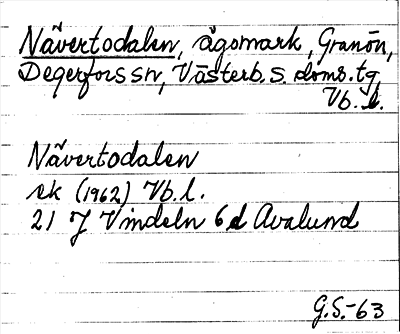 Nävertodalen, ägomark, Granön,
Degerfors sn, Västerb. S. doms. tg
Vb. l.
Nävertodalen
ek (1962) Vb. l.
21 J Vindeln 6 d Avalund
G.S.-63